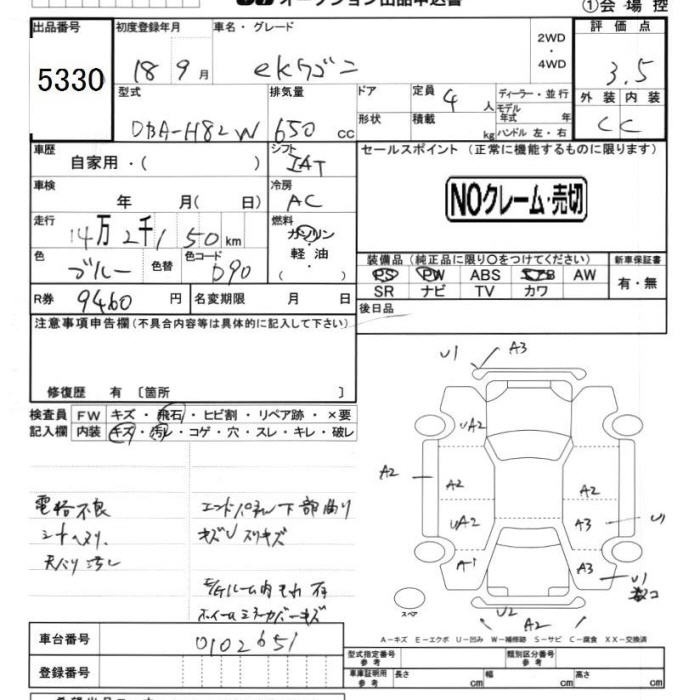 オークション出品申込書
①会場控
出品番号 初度登録年月 車名・グレード 2WD・4WD 評価点
5330 18 9月 ekワゴン 3.5
型式 排気量 ドア 定員 4人 ディーラー・並行 外装 内装
DBA-H82W 650cc 形状 積載 kg モデル年式 年 ハンドル 左・右 C C
車歴 自家用・( ) シフト IAT セールスポイント (正常に機能するものに限ります)
車検 年 月( 日) 冷房 AC NOクレーム・売切
走行 14万2千150km 燃料 ガソリン・軽油・( )
色 ブルー 色替 色コード D90 装備品(純正品に限り〇をつけてください) 新車保証書
PS PW ABS エアB AW 有・無
SR ナビ TV カワ
R券 9460円 名変期限 月 日 後日品
注意事項申告欄(不具合内容等は具体的に記入して下さい)
修復歴 有 〔箇所 〕
検査員 FW キズ・飛石・ヒビ割・リペア跡・×要
記入欄 内装 キズ・汚レ・コゲ・穴・スレ・キレ・破レ
U1 A3
UA2
A2 A2 A2
UA2 A3 U1
A1 A3 U1
スペア U2 A2
電格不良 エンドパネル下部曲り
シートヘタリ. キズU スリキズ
天バリ汚レ
E/Gルーム内
車台番号 0102651
登録番号
A-キズ E-エクボ U-凹み W-補修跡 S-サビ C-腐食 XX-交換済
型式指定番号 参考 類別区分番号 参考
車庫証明用 参考 長さ cm 幅 cm 高さ cm